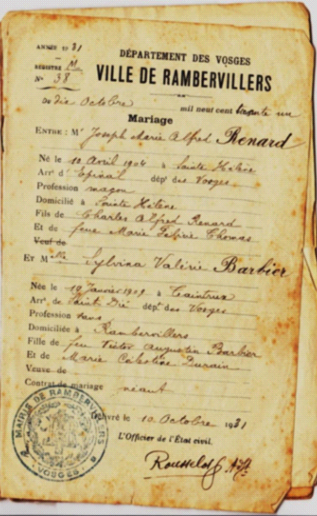 ANNÉE 1931
DÉPARTEMENT DES VOSGES
REGISTRE M
VILLE DE RAMBERVILLERS
N° 38
Du dix Octobre
mil neuf cent trente un
Mariage
ENTRE : Mr Joseph Marie Alfred Renard
Né le 10 Avril 1904 à Sainte Hélène
Arrt d'Epinal dépt des Vosges
Profession maçon
Domicilié à Sainte Hélène
Fils de Charles Alfred Renard
Et de feue Marie Thomas
Veuf de
ET Melle Sylvina Valérie Barbier
Née le 19 Janvier 1909 à
Arrt de Saint Dié dépt des Vosges
Profession sans
Domiciliée à Rambervillers
Fille de feu Victor Augustin Barbier
Et de Marie Célestine Durain
Veuve de
Contrat de mariage néant
10 Octobre 1931
L'Officier de l'État civil.
MAIRIE DE RAMBERVILLERS
VOSGES